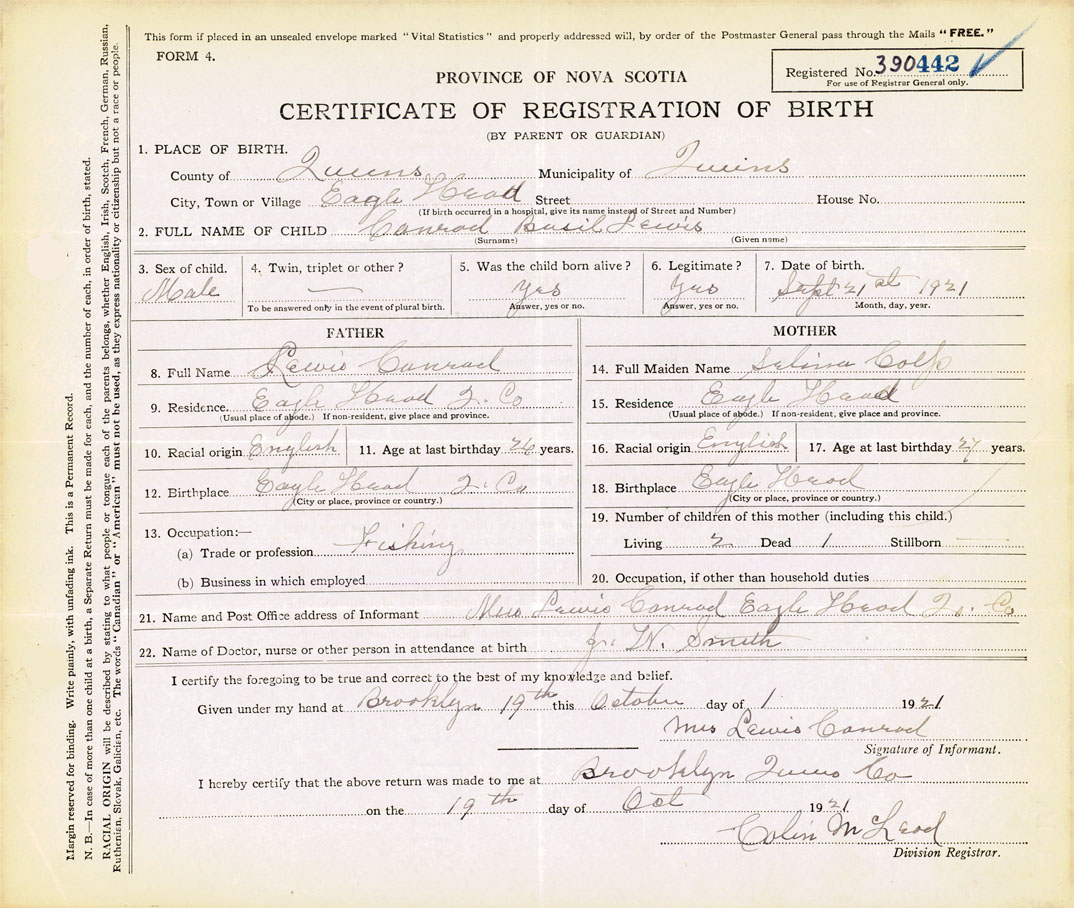 This form if placed in an unsealed envelope marked "Vital Statistics" and properly addressed will, by order of the Postmaster General pass through the Mails "FREE."
FORM 4.
Registered No. 390442
For use of Registrar General only.
PROVINCE OF NOVA SCOTIA
CERTIFICATE OF REGISTRATION OF BIRTH
(BY PARENT OR GUARDIAN)
1. PLACE OF BIRTH.
County of Queens Municipality of Queens
City, Town or Village Eagle Head Street House No.
(If birth occurred in a hospital, give its name instead of Street and Number)
2. FULL NAME OF CHILD Conrad Basil Lewis
(Surname) (Given name)
3. Sex of child. 4. Twin, triplet or other? 5. Was the child born alive? 6. Legitimate? 7. Date of birth.
Male — Yes Yes Sept 21st 1921
To be answered only in the event of plural birth. Answer, yes or no. Answer, yes or no. Month, day, year.
FATHER
8. Full Name Lewis Conrad
9. Residence. Eagle Head Q. Co
(Usual place of abode.) If non-resident, give place and province.
10. Racial origin English 11. Age at last birthday 26 years.
12. Birthplace Eagle Head Q. Co
(City or place, province or country.)
13. Occupation:—
(a) Trade or profession Fishing
(b) Business in which employed
MOTHER
14. Full Maiden Name Selina Colp
15. Residence Eagle Head
(Usual place of abode.) If non-resident, give place and province.
16. Racial origin English 17. Age at last birthday 27 years.
18. Birthplace Eagle Head
(City or place, province or country.)
19. Number of children of this mother (including this child.)
Living 2 Dead 1 Stillborn
20. Occupation, if other than household duties
21. Name and Post Office address of Informant Mrs Lewis Conrad Eagle Head Q. Co
22. Name of Doctor, nurse or other person in attendance at birth W. Smith
I certify the foregoing to be true and correct to the best of my knowledge and belief.
Given under my hand at Brooklyn 19th this October day of 1 1921
Mrs Lewis Conrad
Signature of Informant.
I hereby certify that the above return was made to me at Brooklyn Queens Co
on the 19th day of Oct 1921
Colin McLeod
Division Registrar.
Margin reserved for binding. Write plainly, with unfading ink. This is a Permanent Record.
N. B.—In case of more than one child at a birth, a Separate Return must be made for each, and the number of each, in order of birth, stated.
RACIAL ORIGIN will be described by stating to what people or tongue each of the parents belongs, whether English, Irish, Scotch, French, German, Russian,
Ruthenian, Slovak, Galician, etc. The words "Canadian" or "American" must not be used, as they express nationality or citizenship but not a race or people.